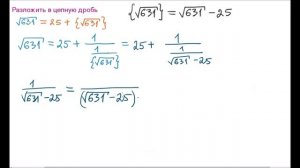 Разложить в цепную дробь
{√631} = √631 - 25
√631 = 25 + {√631}
√631 = 25 + 1/(1/{√631}) = 25 + 1/(1/(√631 - 25))
1/(√631 - 25) = /(√631 - 25)·